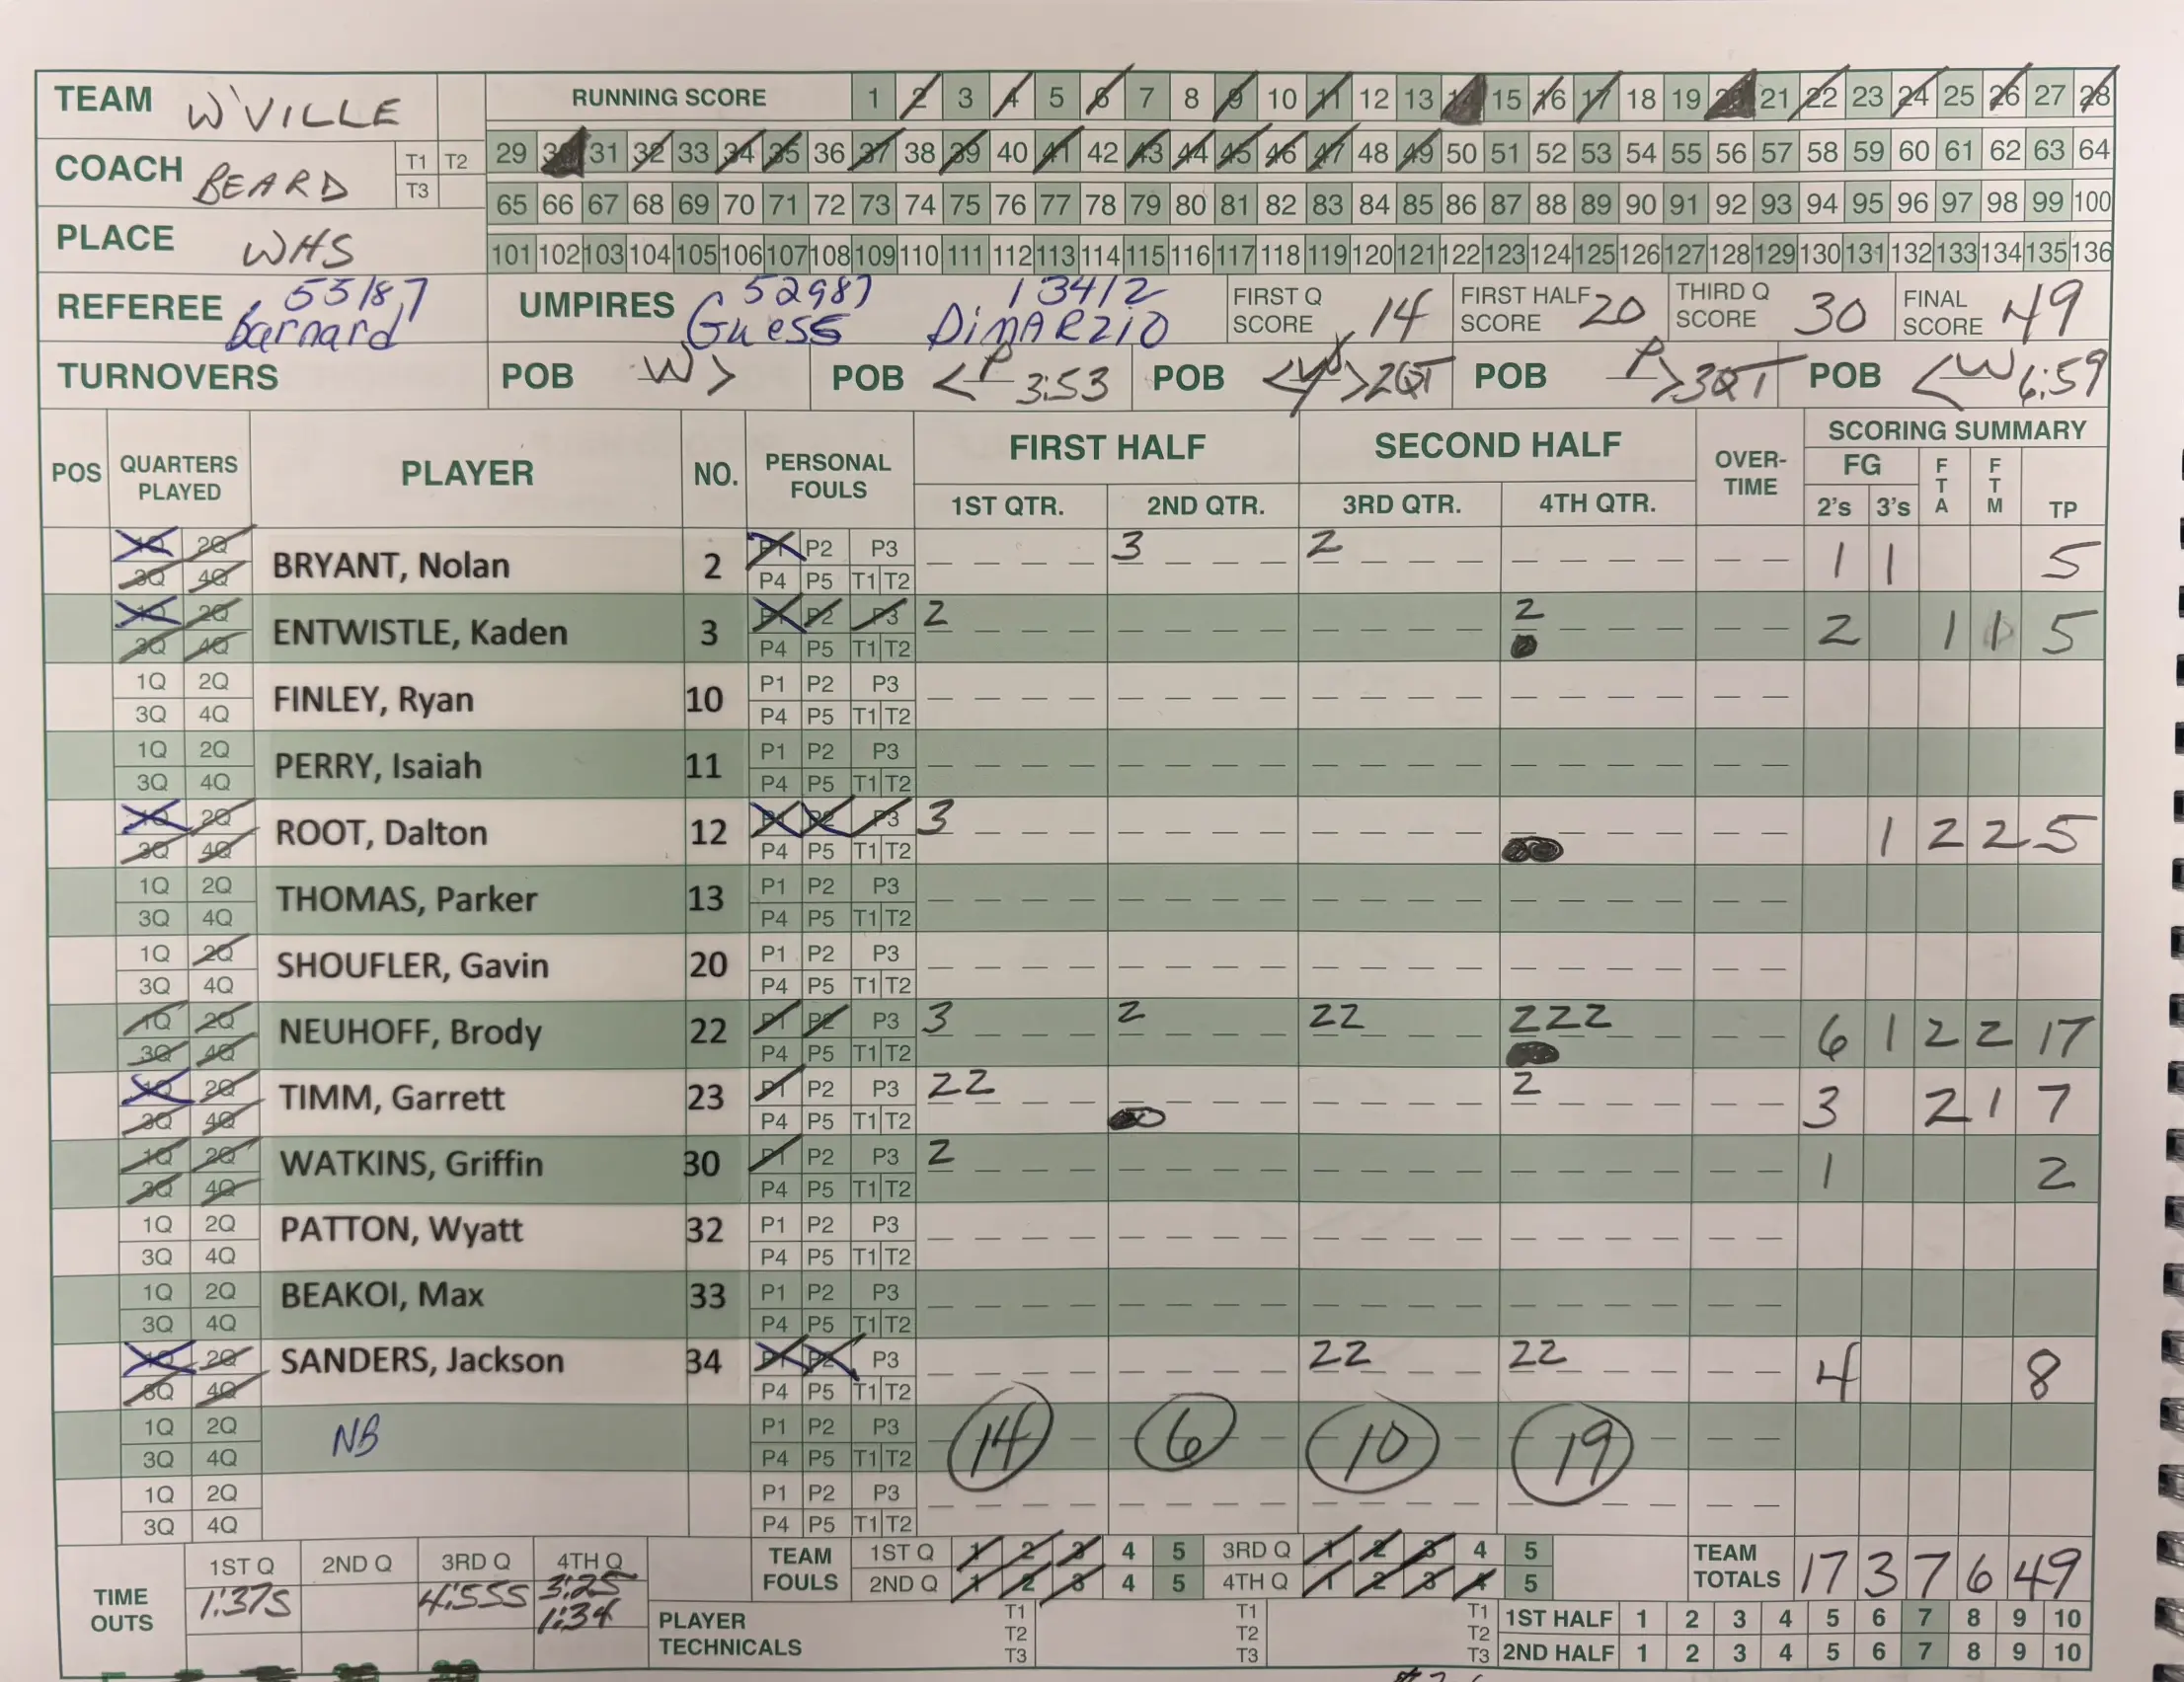 TEAM W'VILLE RUNNING SCORE 1 2 3 4 5 6 7 8 9 10 11 12 13 14 15 16 17 18 19 20 21 22 23 24 25 26 27 28
COACH BEARD T1 T2 29 30 31 32 33 34 35 36 37 38 39 40 41 42 43 44 45 46 47 48 49 50 51 52 53 54 55 56 57 58 59 60 61 62 63 64
T3
65 66 67 68 69 70 71 72 73 74 75 76 77 78 79 80 81 82 83 84 85 86 87 88 89 90 91 92 93 94 95 96 97 98 99 100
PLACE WHS 101 102 103 104 105 106 107 108 109 110 111 112 113 114 115 116 117 118 119 120 121 122 123 124 125 126 127 128 129 130 131 132 133 134 135 136
REFEREE 55187 Barnard UMPIRES 52987 Guess 13412 DiMARZIO FIRST Q SCORE 14 FIRST HALF SCORE 20 THIRD Q SCORE 30 FINAL SCORE 49
TURNOVERS POB W> POB <P 3:53 POB 2QT POB P> 3QT POB <W 6:59
POS QUARTERS PLAYED PLAYER NO. PERSONAL FOULS FIRST HALF SECOND HALF OVER-TIME SCORING SUMMARY
1ST QTR. 2ND QTR. 3RD QTR. 4TH QTR. FG 2's 3's FTA FTM TP
1Q 2Q BRYANT, Nolan 2 P1 P2 P3 3 2 1 1 5
3Q 4Q P4 P5 T1 T2
1Q 2Q ENTWISTLE, Kaden 3 P1 P2 P3 2 2 2 1 1 5
3Q 4Q P4 P5 T1 T2
1Q 2Q FINLEY, Ryan 10 P1 P2 P3
3Q 4Q P4 P5 T1 T2
1Q 2Q PERRY, Isaiah 11 P1 P2 P3
3Q 4Q P4 P5 T1 T2
1Q 2Q ROOT, Dalton 12 P1 P2 P3 3 1 2 2 5
3Q 4Q P4 P5 T1 T2
1Q 2Q THOMAS, Parker 13 P1 P2 P3
3Q 4Q P4 P5 T1 T2
1Q 2Q SHOUFLER, Gavin 20 P1 P2 P3
3Q 4Q P4 P5 T1 T2
1Q 2Q NEUHOFF, Brody 22 P1 P2 P3 3 2 22 222 6 1 2 2 17
3Q 4Q P4 P5 T1 T2
1Q 2Q TIMM, Garrett 23 P1 P2 P3 22 2 3 2 1 7
3Q 4Q P4 P5 T1 T2
1Q 2Q WATKINS, Griffin 30 P1 P2 P3 2 1 2
3Q 4Q P4 P5 T1 T2
1Q 2Q PATTON, Wyatt 32 P1 P2 P3
3Q 4Q P4 P5 T1 T2
1Q 2Q BEAKOI, Max 33 P1 P2 P3
3Q 4Q P4 P5 T1 T2
1Q 2Q SANDERS, Jackson 34 P1 P2 P3 22 22 4 8
3Q 4Q P4 P5 T1 T2
1Q 2Q NB P1 P2 P3 14 6 10 19
3Q 4Q P4 P5 T1 T2
1Q 2Q P1 P2 P3
3Q 4Q P4 P5 T1 T2
TIME OUTS 1ST Q 2ND Q 3RD Q 4TH Q TEAM FOULS 1ST Q 1 2 3 4 5 3RD Q 1 2 3 4 5 TEAM TOTALS 17 3 7 6 49
1:37S 4:55S 3:25 2ND Q 1 2 3 4 5 4TH Q 1 2 3 4 5
1:34
PLAYER TECHNICALS T1 T2 T3 T1 T2 T3 T1 T2 T3 1ST HALF 1 2 3 4 5 6 7 8 9 10
2ND HALF 1 2 3 4 5 6 7 8 9 10